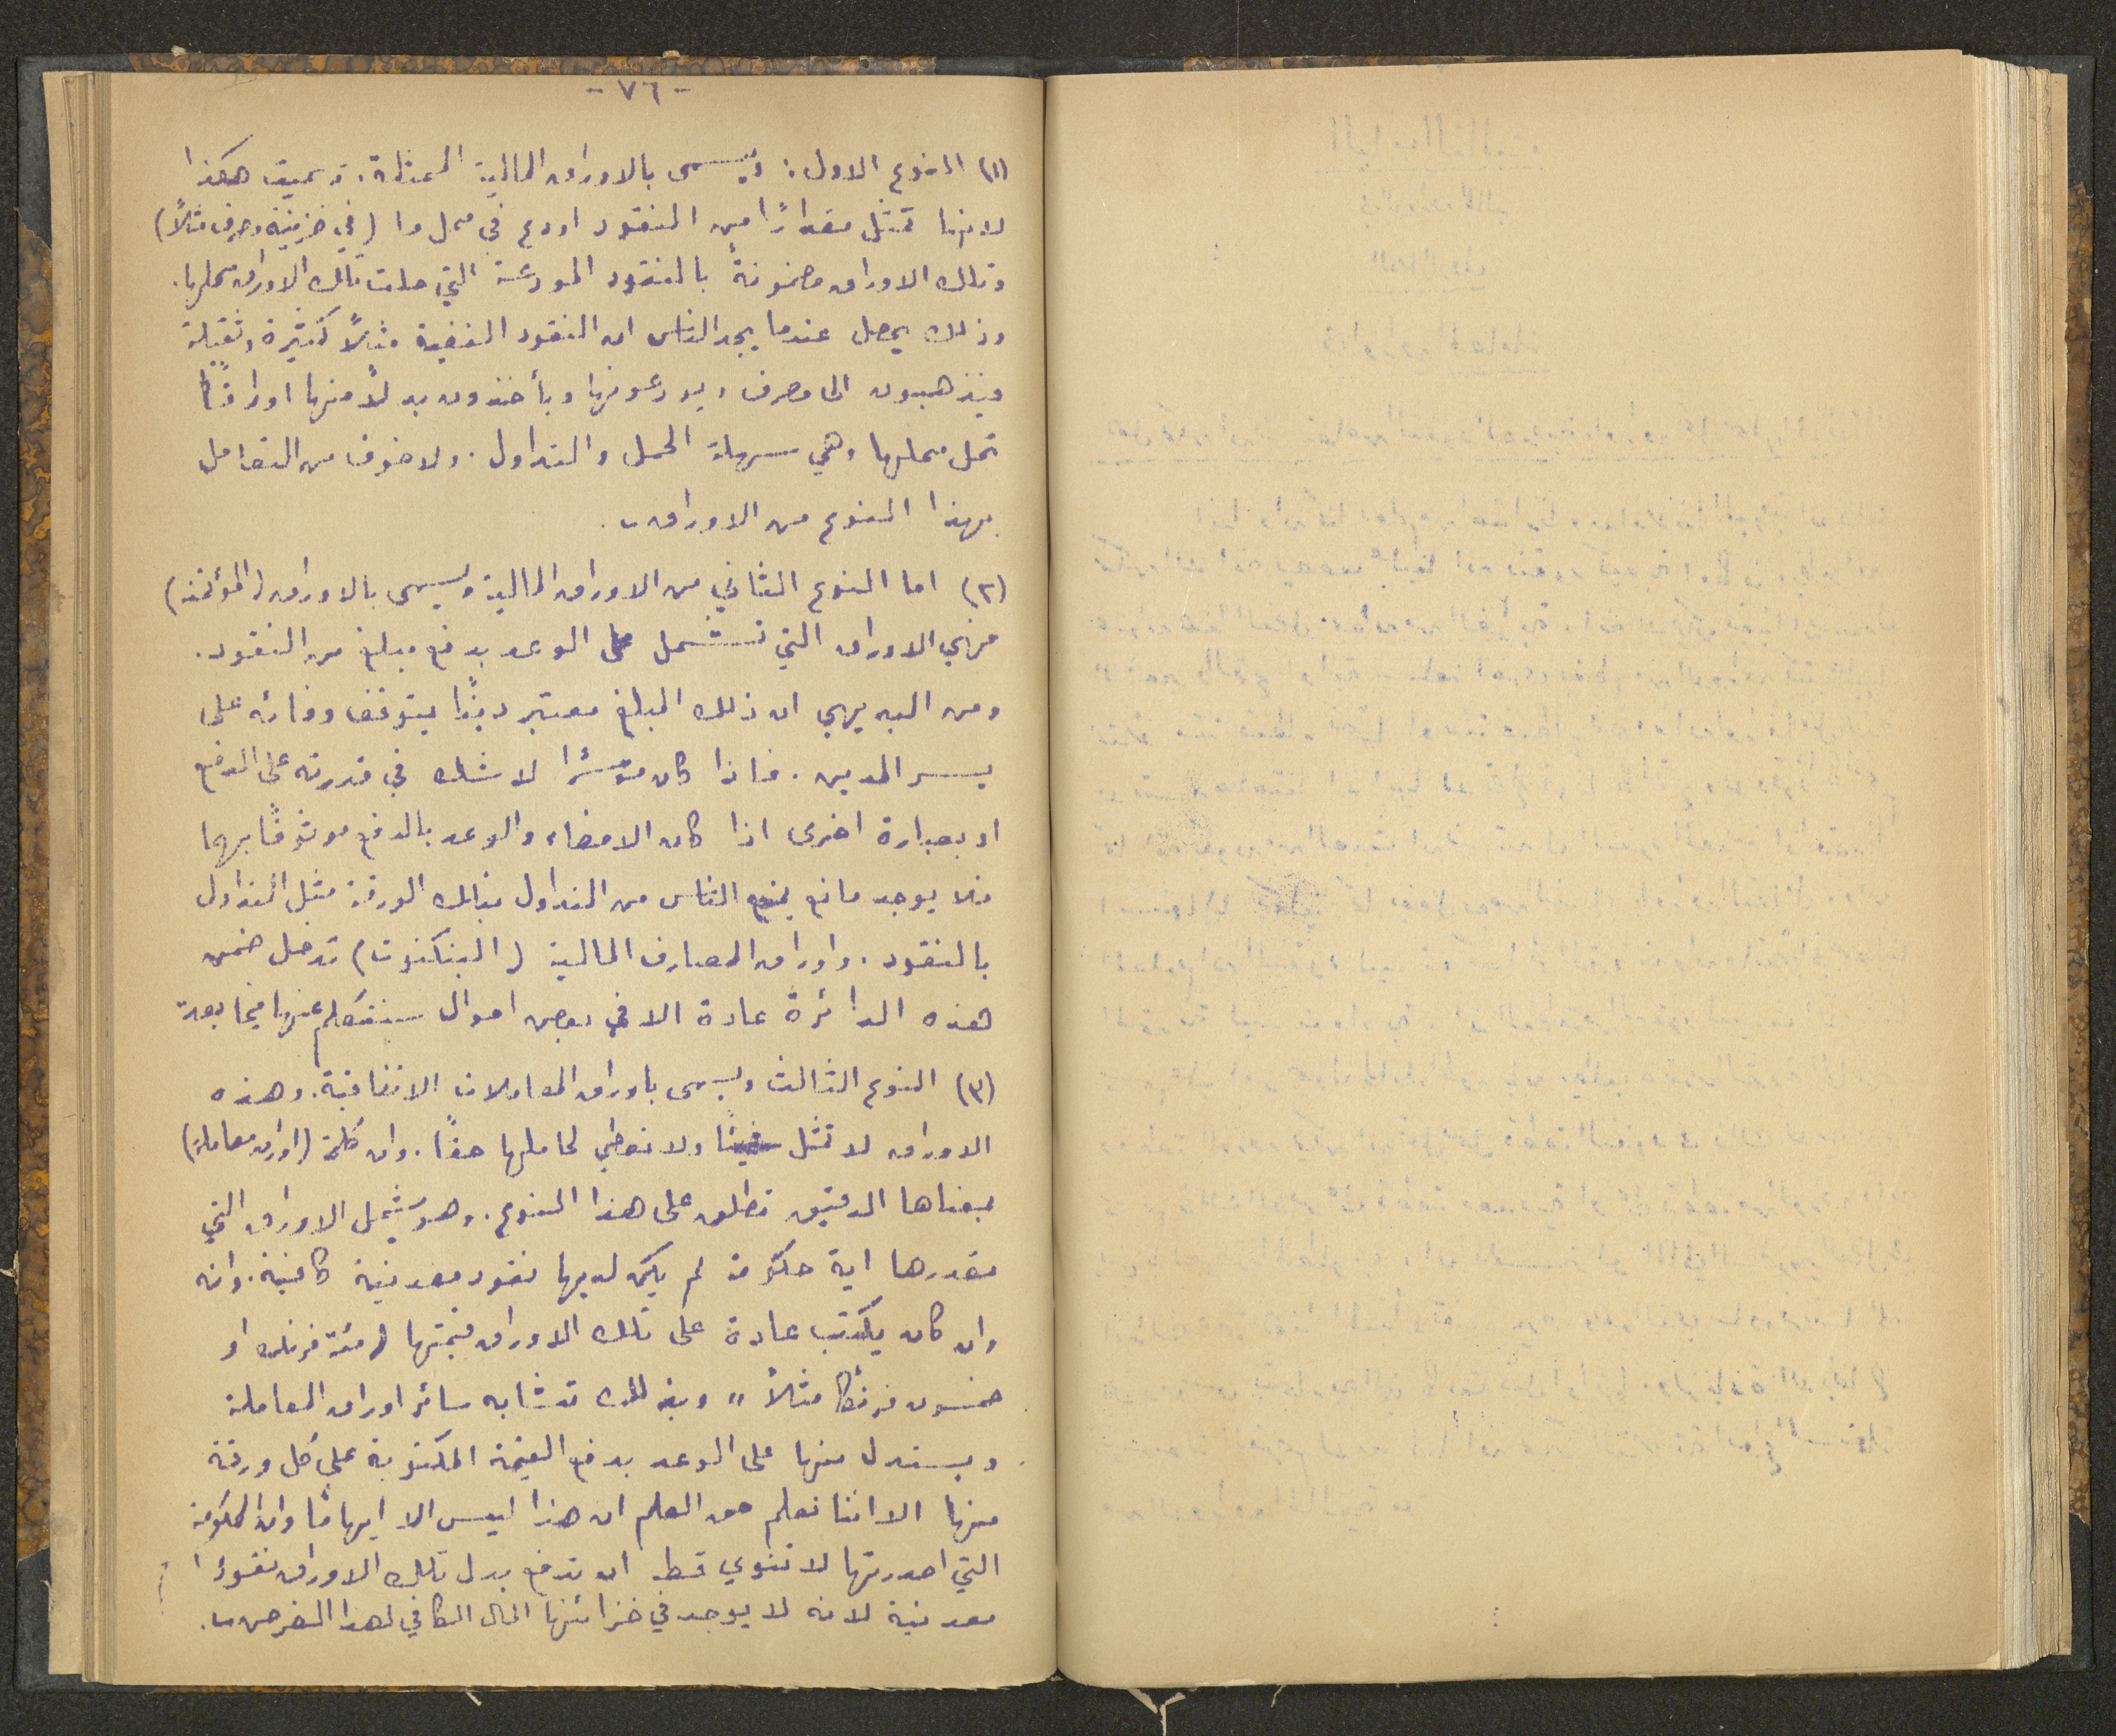 - ٧٦ -
(١) النوع الاول: ويسمى بالاوراق المالية الممثلة. تسميت هكذا
لانها تمثل مقدارًا من النقود اودع في محل ما (في خزينة مصرف مثلاً)
وتلك الاوراق مضمونة بالنقود المودعة التي حلت تلك الاوراق محلها.
وذلك يحصل عندما يجد الناس ان النقود الفضية مثلاً كثيرة وثقيلة
فيذهبون الى مصرف ويودعونها ويأخذون بدلاً منها اوراقًا
تحل محلها وهي سهلة الحمل والتداول. ولا خوف من التعامل
بهذا النوع من الاوراق.
(٢) اما النوع الثاني من الاوراق المالية ويسمى بالاوراق (المؤتمنة)
فهي الاوراق التي تشمل على الوعد بدفع مبلغ من النقود.
ومن البديهي ان ذلك المبلغ معتبر دينًا يتوقف وفائه على
يسر المدين. فاذا كان موسرًا لا شك في قدرته على الدفع
او بعبارة اخرى اذا كان الامضاء والوعد بالدفع موثوقًا بهما
فلا يوجد مانع يمنع الناس من التداول بتلك الورقة مثل التداول
بالنقود. واوراق المصارف المالية (البنكنوت) تدخل ضمن
هذه الدائرة عادة الا في بعض احوال سنتكلم عنها فيما بعد
(٣) النوع الثالث ويسمى باوراق المعاملات الاتفاقية. وهذه
الاوراق لا تمثل شيئًا ولا تعطي لحاملها حقًا. وان كلمة (اوراق معاملة)
بمعناها الدقيق تطلق على هذا النوع. وهو يشمل الاوراق التي
تصدرها اية حكومة لم يكن لديها نقود معدنية كافية. وانه
وان كان يكتب عادة على تلك الاوراق قيمتها (مئة فرنك او
خمسون فرنكًا مثلاً" وبذلك تشابه سائر اوراق المعاملة
ويستدل منها على الوعد بدفع القيمة المكتوبة على كل ورقة
منها الا اننا نعلم حق العلم ان هذا ليس الا ايهامًا وان الحكومة
التي اصدرتها لا تنوي قط ان تدفع بدل تلك الاوراق نقودًا
معدنية لانه لا يوجد في خزائنها المال الكافي لهذا الغرض.